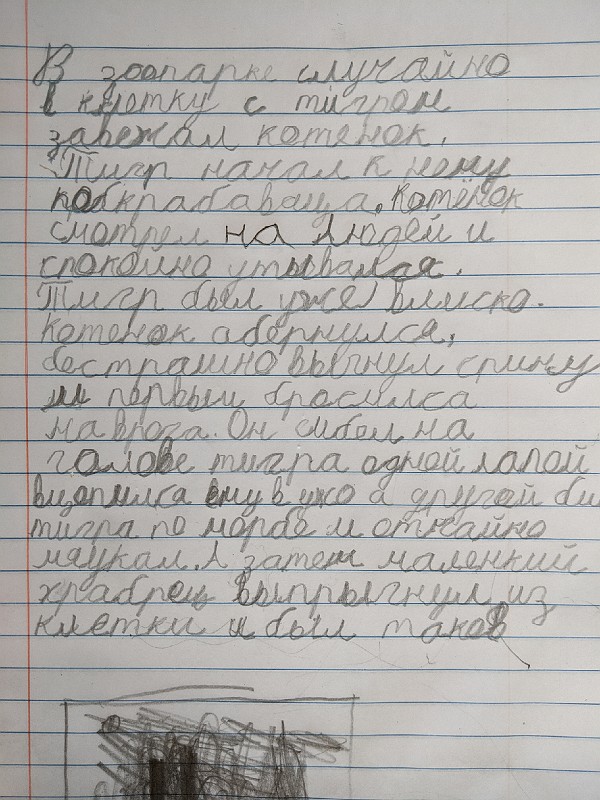 В зоопарке случайно
в клетку с тигром
забежал котенок.
Тигр начал к нему
Котёнок
смотрел на людей и
спокойно умывался.
Тигр был уже близко.
Котенок обернулся,
бестрашно выгнул спину
и первым бросился
на врога. Он сибел на
голове тигра одной лапой
вцепился ему в ухо а другой бил
тигра по морде и отчайно
мяукал. А затем маленкий
храбрец выпрыгнул из
клетки и был таков